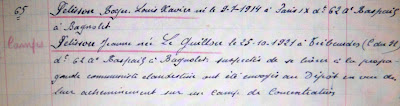 65 Pelisson Roger, Louis Xavier né le 2-7-1914 à Paris IX dt 62 Rt Raspail
à Bagnolet
Camps Pelisson Jeanne née Le Guillou le 25.10.1921 à Trébeurden (C du N)
dt 62 Rt Raspail à Bagnolet suspectés de se livrer à la propa-
gande communiste clandestine ont été envoyés au Dépôt en vue de
leur acheminement sur un camp de Concentration